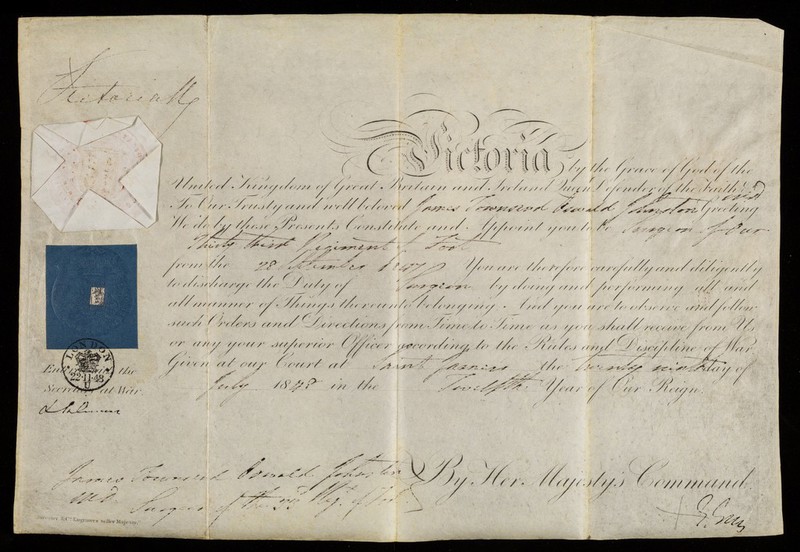 Victoria R
Victoria by the Grace of God of the
United Kingdom of Great Britain and Ireland Queen Defender of the Faith &c.
To Our Trusty and well beloved James Townsend Oswald Johnston MD Greeting
We do by these Presents Constitute and Appoint you to be Surgeon of Our
Thirty third Regiment of Foot
from the 28 1847 You are therefore carefully and diligently
to discharge the Duty of Surgeon by doing and performing all and
all manner of Things thereunto belonging. And you are to observe and follow
such Orders and Directions from Time to Time as you shall receive from Us
or any your superior Officer according to the Rules and Discipline of War.
Given at our Court at Saint James's the twenty ninth day of
July 1848 in the Twelfth Year of Our Reign.
LONDON
22·11·48
the
Secretary at War
By Her Majesty's Command.
James Townsend Oswald Johnston
MD Surgeon of the 33d Reg. of Foot
G. Grey